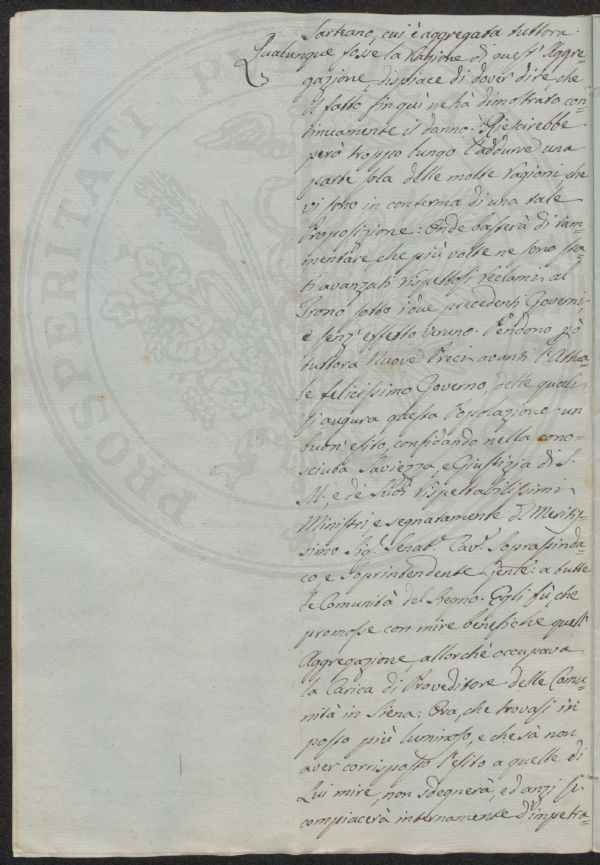 Sarteano, cui è aggregata tuttora.
Qualunque fosse la ragione di quest'Aggre=
gazione, dispiace di dover dire che
il fatto fin quì ne hà dimostrato con=
tinuamente il danno. Riescirebbe
però troppo lungo l'addurre una
parte sola delle molte ragioni che
vi sono in conferma di una tale
Proposizione: Onde basterà di ram=
mentare che più volte ne sono sta=
ti avanzati rispettosi reclami al
Trono sotto i due precedenti Governi,
e senz'effetto veruno. Pendono però
tuttora Nuove Preci avanti l'Attua=
le felicissimo Governo, delle quali
si augura questa Popolazione un
buon'esito, confidando nella cono=
sciuta Saviezza, e Giustizia di S.
M., e de' Suoi rispettabilissimi
Ministri, e segnatamente del Meritis=
simo Sig.r Senat.e Cav.e Soprassinda=
co, e Soprintendente Gen.le a tutte
le Comunità del Regno. Egli fù, che
promosse con mire benefiche quell'
Aggregazione, allorchè occupava
la Carica di Proveditore delle Comu=
nità in Siena: Ora, che trovasi in
posto più luminoso, e che sà non
aver corrisposto l'esito a quelle di
Lui mire, non sdegnerà, ed anzi si
compiacerà internamente d'impetra=
PROSPERITATI